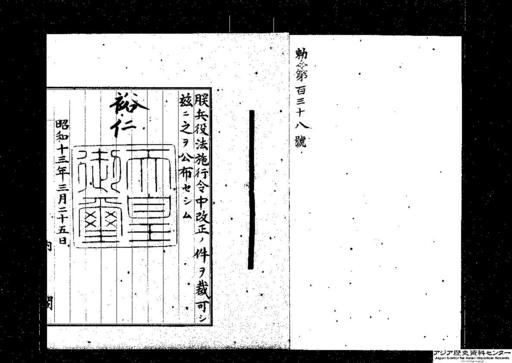 勅令第百三十八號
朕兵役法施行令中改正ノ件ヲ裁可シ
茲ニ之ヲ公布セシム
裕仁
天皇御璽
昭和十三年三月二十五日
内閣
アジア歴史資料センター
Japan Center for Asian Historical Records